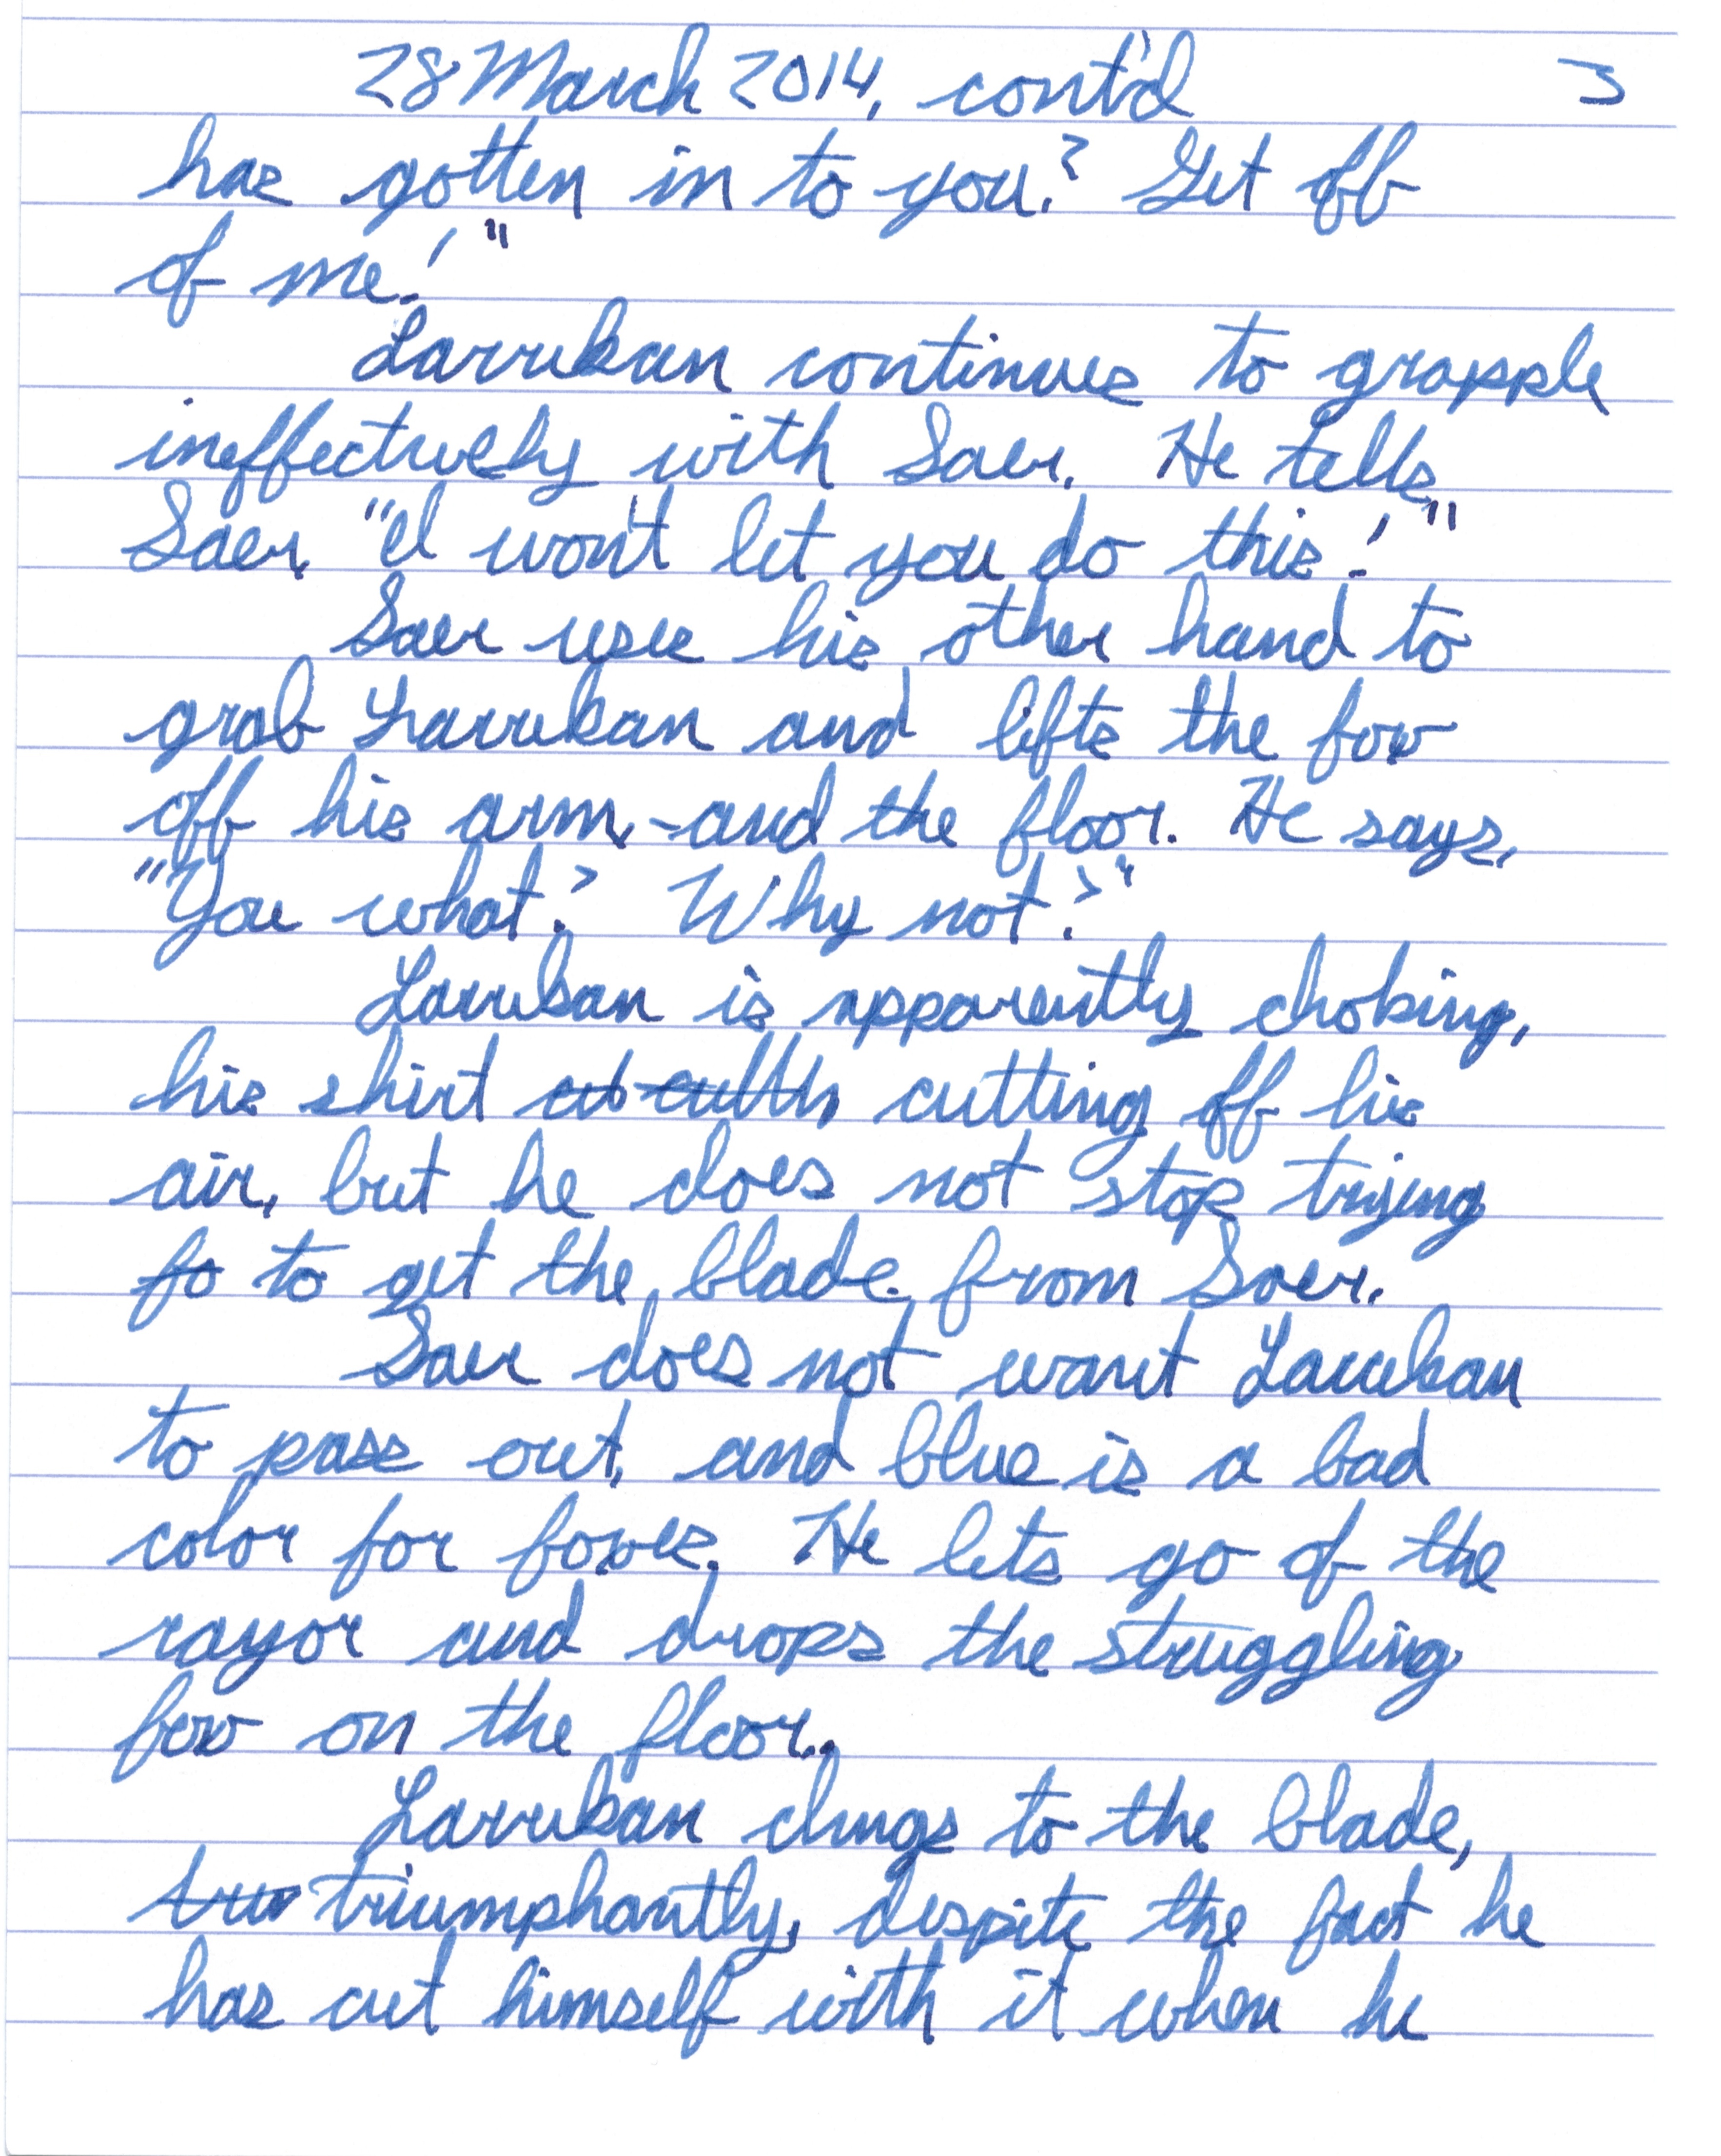 28 March 2014, cont'd 3
has gotten in to you? Get off
of me!"
Larrukan continues to grapple
ineffectively with Saer. He tells
Saer, "I won't let you do this!"
Saer uses his other hand to
grab Larrukan and lifts the fox
off his arm, - and the floor. He says,
"You what? Why not?"
Larrukan is apparently choking,
his shirt cutting off his
air, but he does not stop trying
fo to get the blade from Saer.
Saer does not want Larrukan
to pass out, and blue is a bad
color for foxes. He lets go of the
razor and drops the struggling
fox on the floor.
Larrukan clings to the blade,
tru triumphantly, despite the fact he
has cut himself with it when he